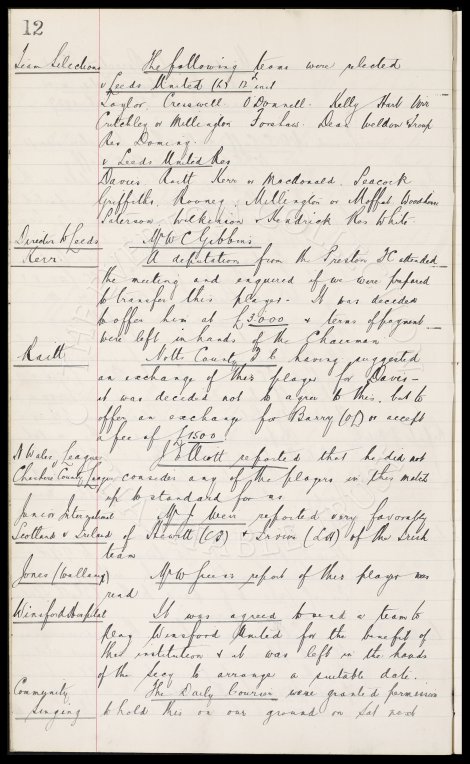 12
Team Selections The following teams were selected
v Leeds United (h) 12th inst
Taylor. Cresswell. O'Donnell. Kelly Hart Weir
Critchley or Millington Forshaw. Dean Weldon & Troup
Res Dominy.
v Leeds United Res
Davies Raitt Kerr or Macdonald. Peacock
Griffiths, Rooney, Millington or Moffat, Woodhouse
Paterson Wilkinson & Kendrick Res White.
Director to Leeds Mr W C Gibbins
Kerr. A deputation from the Preston FC attended
the meeting and enquired if we were prepared
to transfer this player. It was decided
to offer him at £3,000 & terms of payment
were left in hands of the Chairman
Raitt Notts County F C having suggested
an exchange of this player for Davis
it was decided not to agree to this, but to
offer an exchange for Barry (OL) or accept
a fee of £1500
N Wales League J Elliott reported that he did not
Cheshire County League consider any of the players in this match
up to standard for us
Junior International Mr J Weir reported very favorably
Scotland v Ireland of Hewitt (CB) & Irvine (LH) of the Irish
team
Jones (Wallasey) Mr W report of this player was
read
Winsford Hospital It was agreed to send a team to
play Winsford United for the benefit of
this institution & it was left in the hands
of the Secy to arrange a suitable date.
Community The Daily Courier were granted permission
Singing to hold this on our ground on Sat next